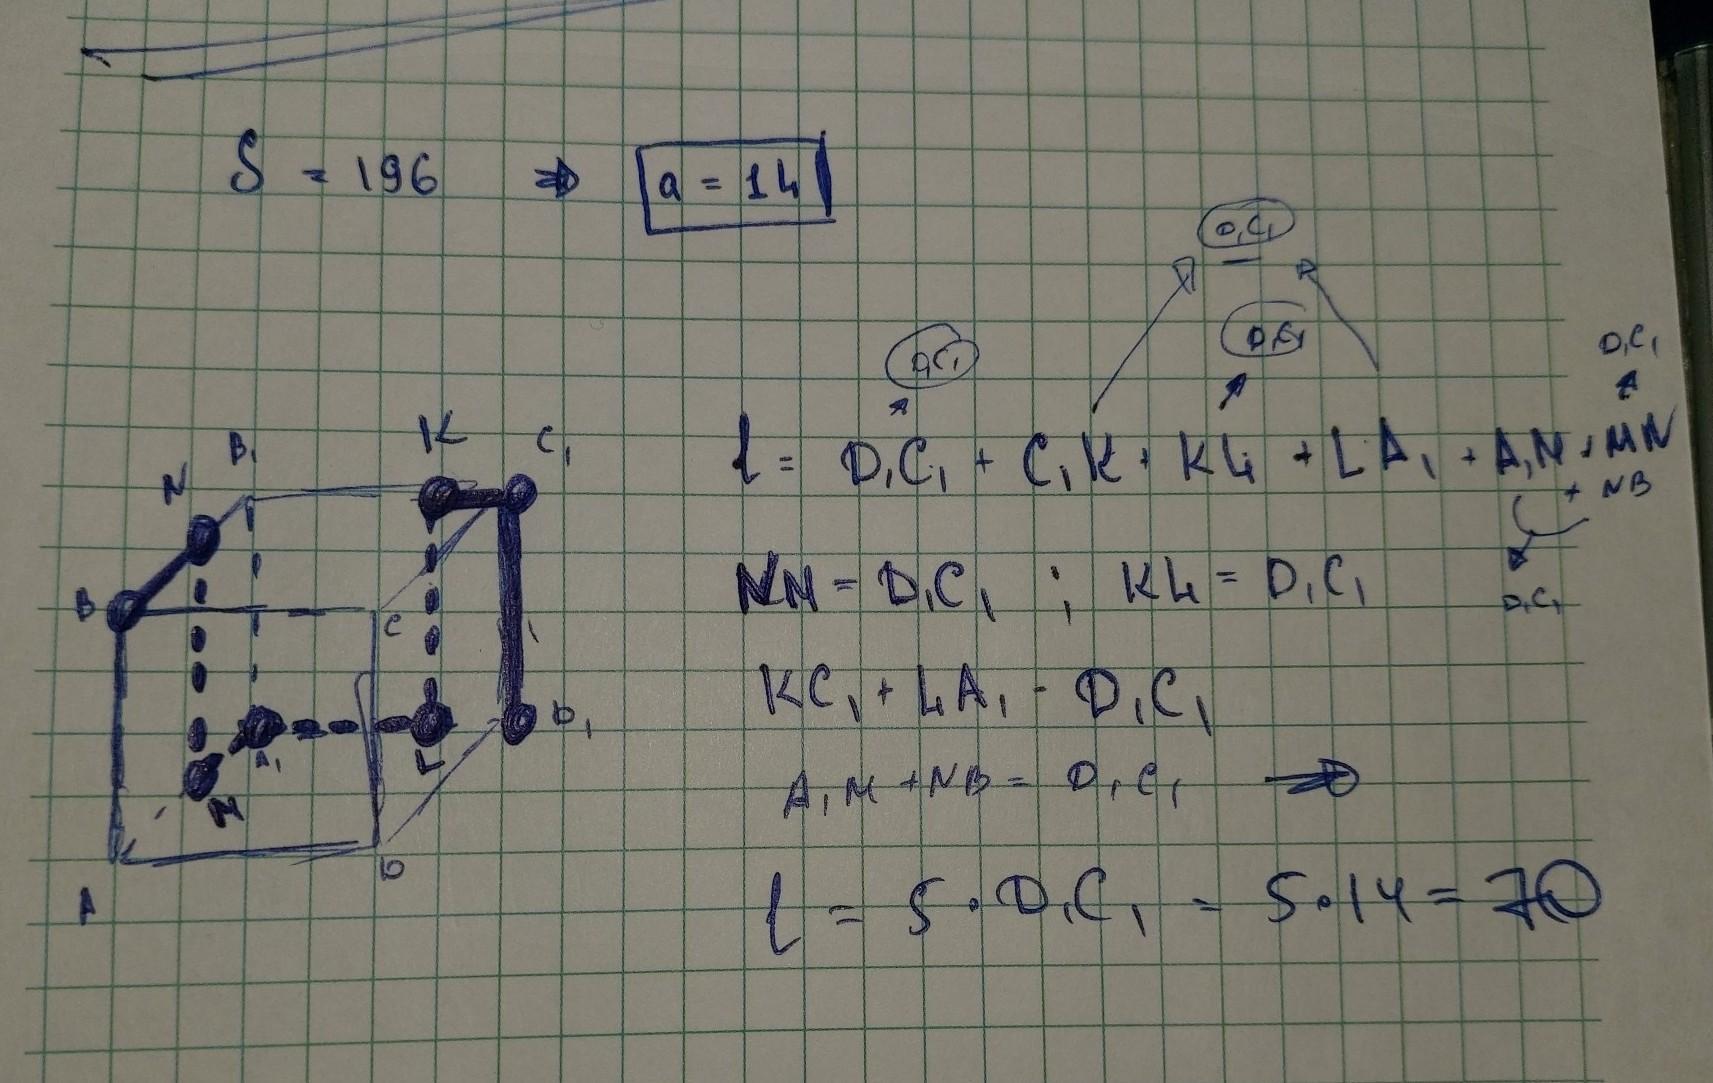 S = 196 ⇒ a = 14
D₁C₁
D₁C₁
D₁C₁
D₁C₁
l = D₁C₁ + C₁K + KL + LA₁ + A₁M + MN
+ NB
D₁C₁
NM = D₁C₁ ; KL = D₁C₁
KC₁ + LA₁ = D₁C₁
A₁M + NB = D₁C₁ ⇒
l = 5 · D₁C₁ = 5 · 14 = 70
N B₁ K C₁
B C
A₁ L D₁
M
A D